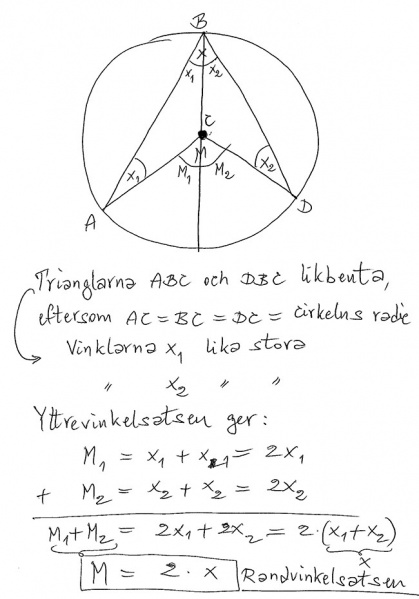 B
x
x₁ x₂
C
x₁ M x₂
M₁ M₂
A D
Trianglarna ABC och DBC likbenta,
eftersom AC = BC = DC = cirkelns radie
Vinklarna x₁ lika stora
〃 x₂ 〃 〃
Yttrevinkelsatsen ger:
M₁ = x₁ + x₁ = 2x₁
+ M₂ = x₂ + x₂ = 2x₂
M₁+M₂ = 2x₁ + 2x₂ = 2·(x₁+x₂)
x
M = 2·x Randvinkelsatsen